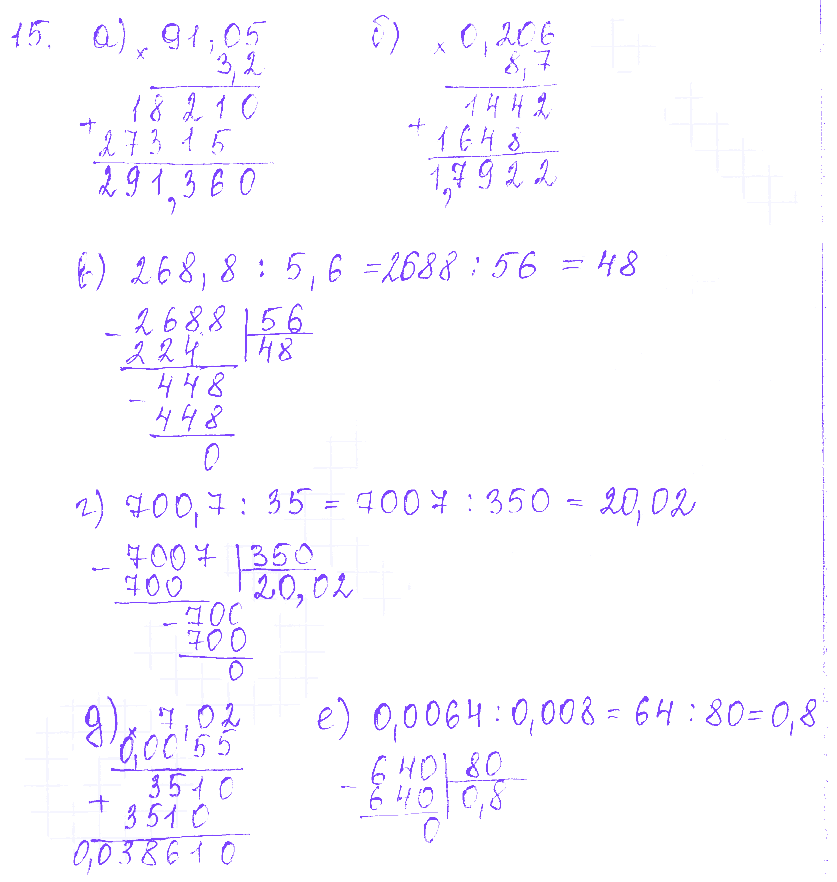 15. а) × 91,05 б) × 0,206
3,2 8,7
18210 1442
+ 27315 + 1648
291,360 1,7922
в) 268,8 : 5,6 = 2688 : 56 = 48
- 2688 56
224 48
- 448
448
0
г) 700,7 : 35 = 7007 : 350 = 20,02
- 7007 350
700 20,02
- 700
700
0
д) × 7,02 е) 0,0064 : 0,008 = 64 : 80 = 0,8
0,0055 - 640 80
3510 640 0,8
+ 3510 0
0,038610